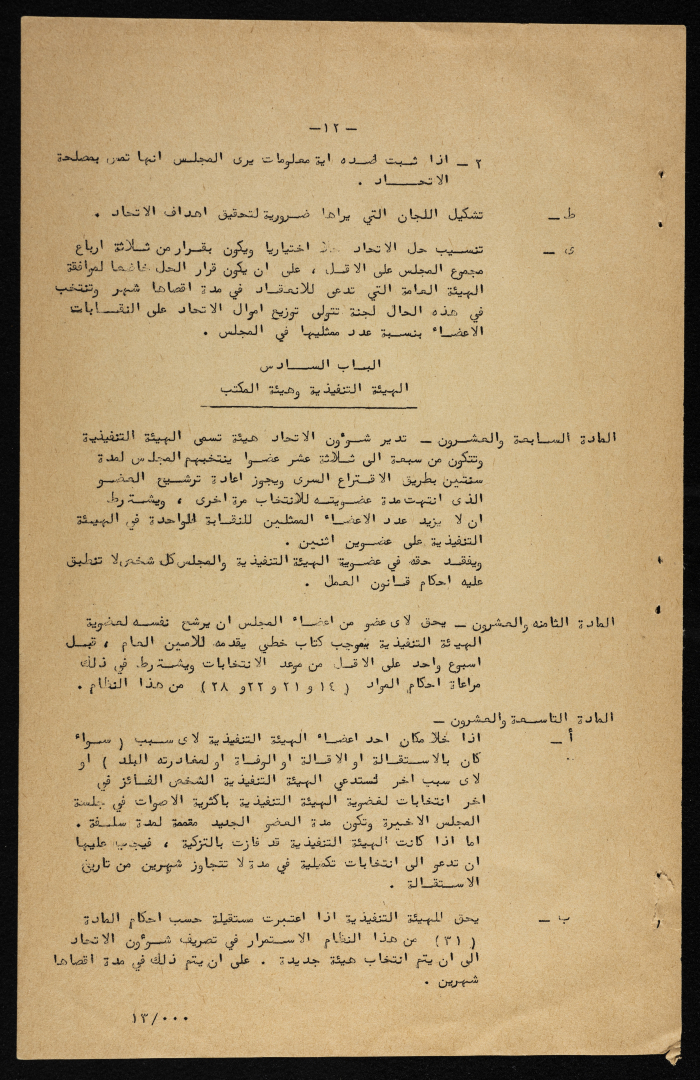 -١٢-
٢ - اذا ثبت ضده اية معلومات يرى المجلس انها تمس بمصلحة
الاتحاد .
ط - تشكيل اللجان التي يراها ضرورية لتحقيق اهداف الاتحاد .
ى - تنسيب حل الاتحاد حلا اختياريا ويكون بقرار من ثلاثة ارباع
مجموع المجلس على الاقل ، على ان يكون قرار الحل خاضعا لموافقة
الهيئة العامة التي تدعى للانعقاد في مدة اقصاها شهر وتنتخب
في هذه الحال لجنة تتولى توزيع اموال الاتحاد على النقابات
الاعضاء بنسبة عدد ممثليها في المجلس .
الباب السادس
الهيئة التنفيذية وهيئة المكتب
المادة السابعة والعشرون - تدير شوءون الاتحاد هيئة تسمى الهيئة التنفيذية
وتتكون من سبعة الى ثلاثة عشر عضوا ينتخبهم المجلس لمدة
سنتين بطريق الاقتراع السرى ويجوز اعادة ترشيح العضو
الذى انتهت مدة عضويته للانتخاب مرة اخرى ، ويشترط
ان لا يزيد عدد الاعضاء الممثلين للنقابة الواحدة في الهيئة
التنفيذية على عضوين اثنين .
ويفقد حقه في عضوية الهيئة التنفيذية والمجلس كل شخص لا تنطبق
عليه احكام قانون العمل .
المادة الثامنه والعشرون - يحق لاى عضو من اعضاء المجلس ان يرشح نفسه لعضوية
الهيئة التنفيذية بموجب كتاب خطي يقدمه للامين العام ، قبل
اسبوع واحد على الاقل من موعد الانتخابات ويشترط في ذلك
مراعاة احكام المواد ( ١٤ و ٢١ و ٢٢و ٢٨ ) من هذا النظام .
المادة التاسعة والعشرون -
أ - اذا خلا مكان احد اعضاء الهيئة التنفيذية لاى سبب ( سواء
كان بالاستقالة او الاقالة او الوفاة او لمغادرته البلد ) او
لاى سبب اخر تستدعي الهيئة التنفيذية الشخص الفائز في
اخر انتخابات لعضوية الهيئة التنفيذية باكثرية الاصوات في جلسة
المجلس الاخيرة وتكون مدة العضو الجديد متممة لمدة سلفة .
اما اذا كانت الهيئة التنفيذية قد فازت بالتزكية ، فيجب عليها
ان تدعو الى انتخابات تكميلية في مدة لا تتجاوز شهرين من تاريخ
الاستقالة .
ب - يحق للهيئة التنفيذية اذا اعتبرت مستقيلة حسب احكام المادة
( ٣١ ) من هذا النظام الاستمرار في تصريف شوءون الاتحاد
الى ان يتم انتخاب هيئة جديدة . على ان يتم ذلك في مدة اقصاها
شهرين .
١٣/٠٠٠